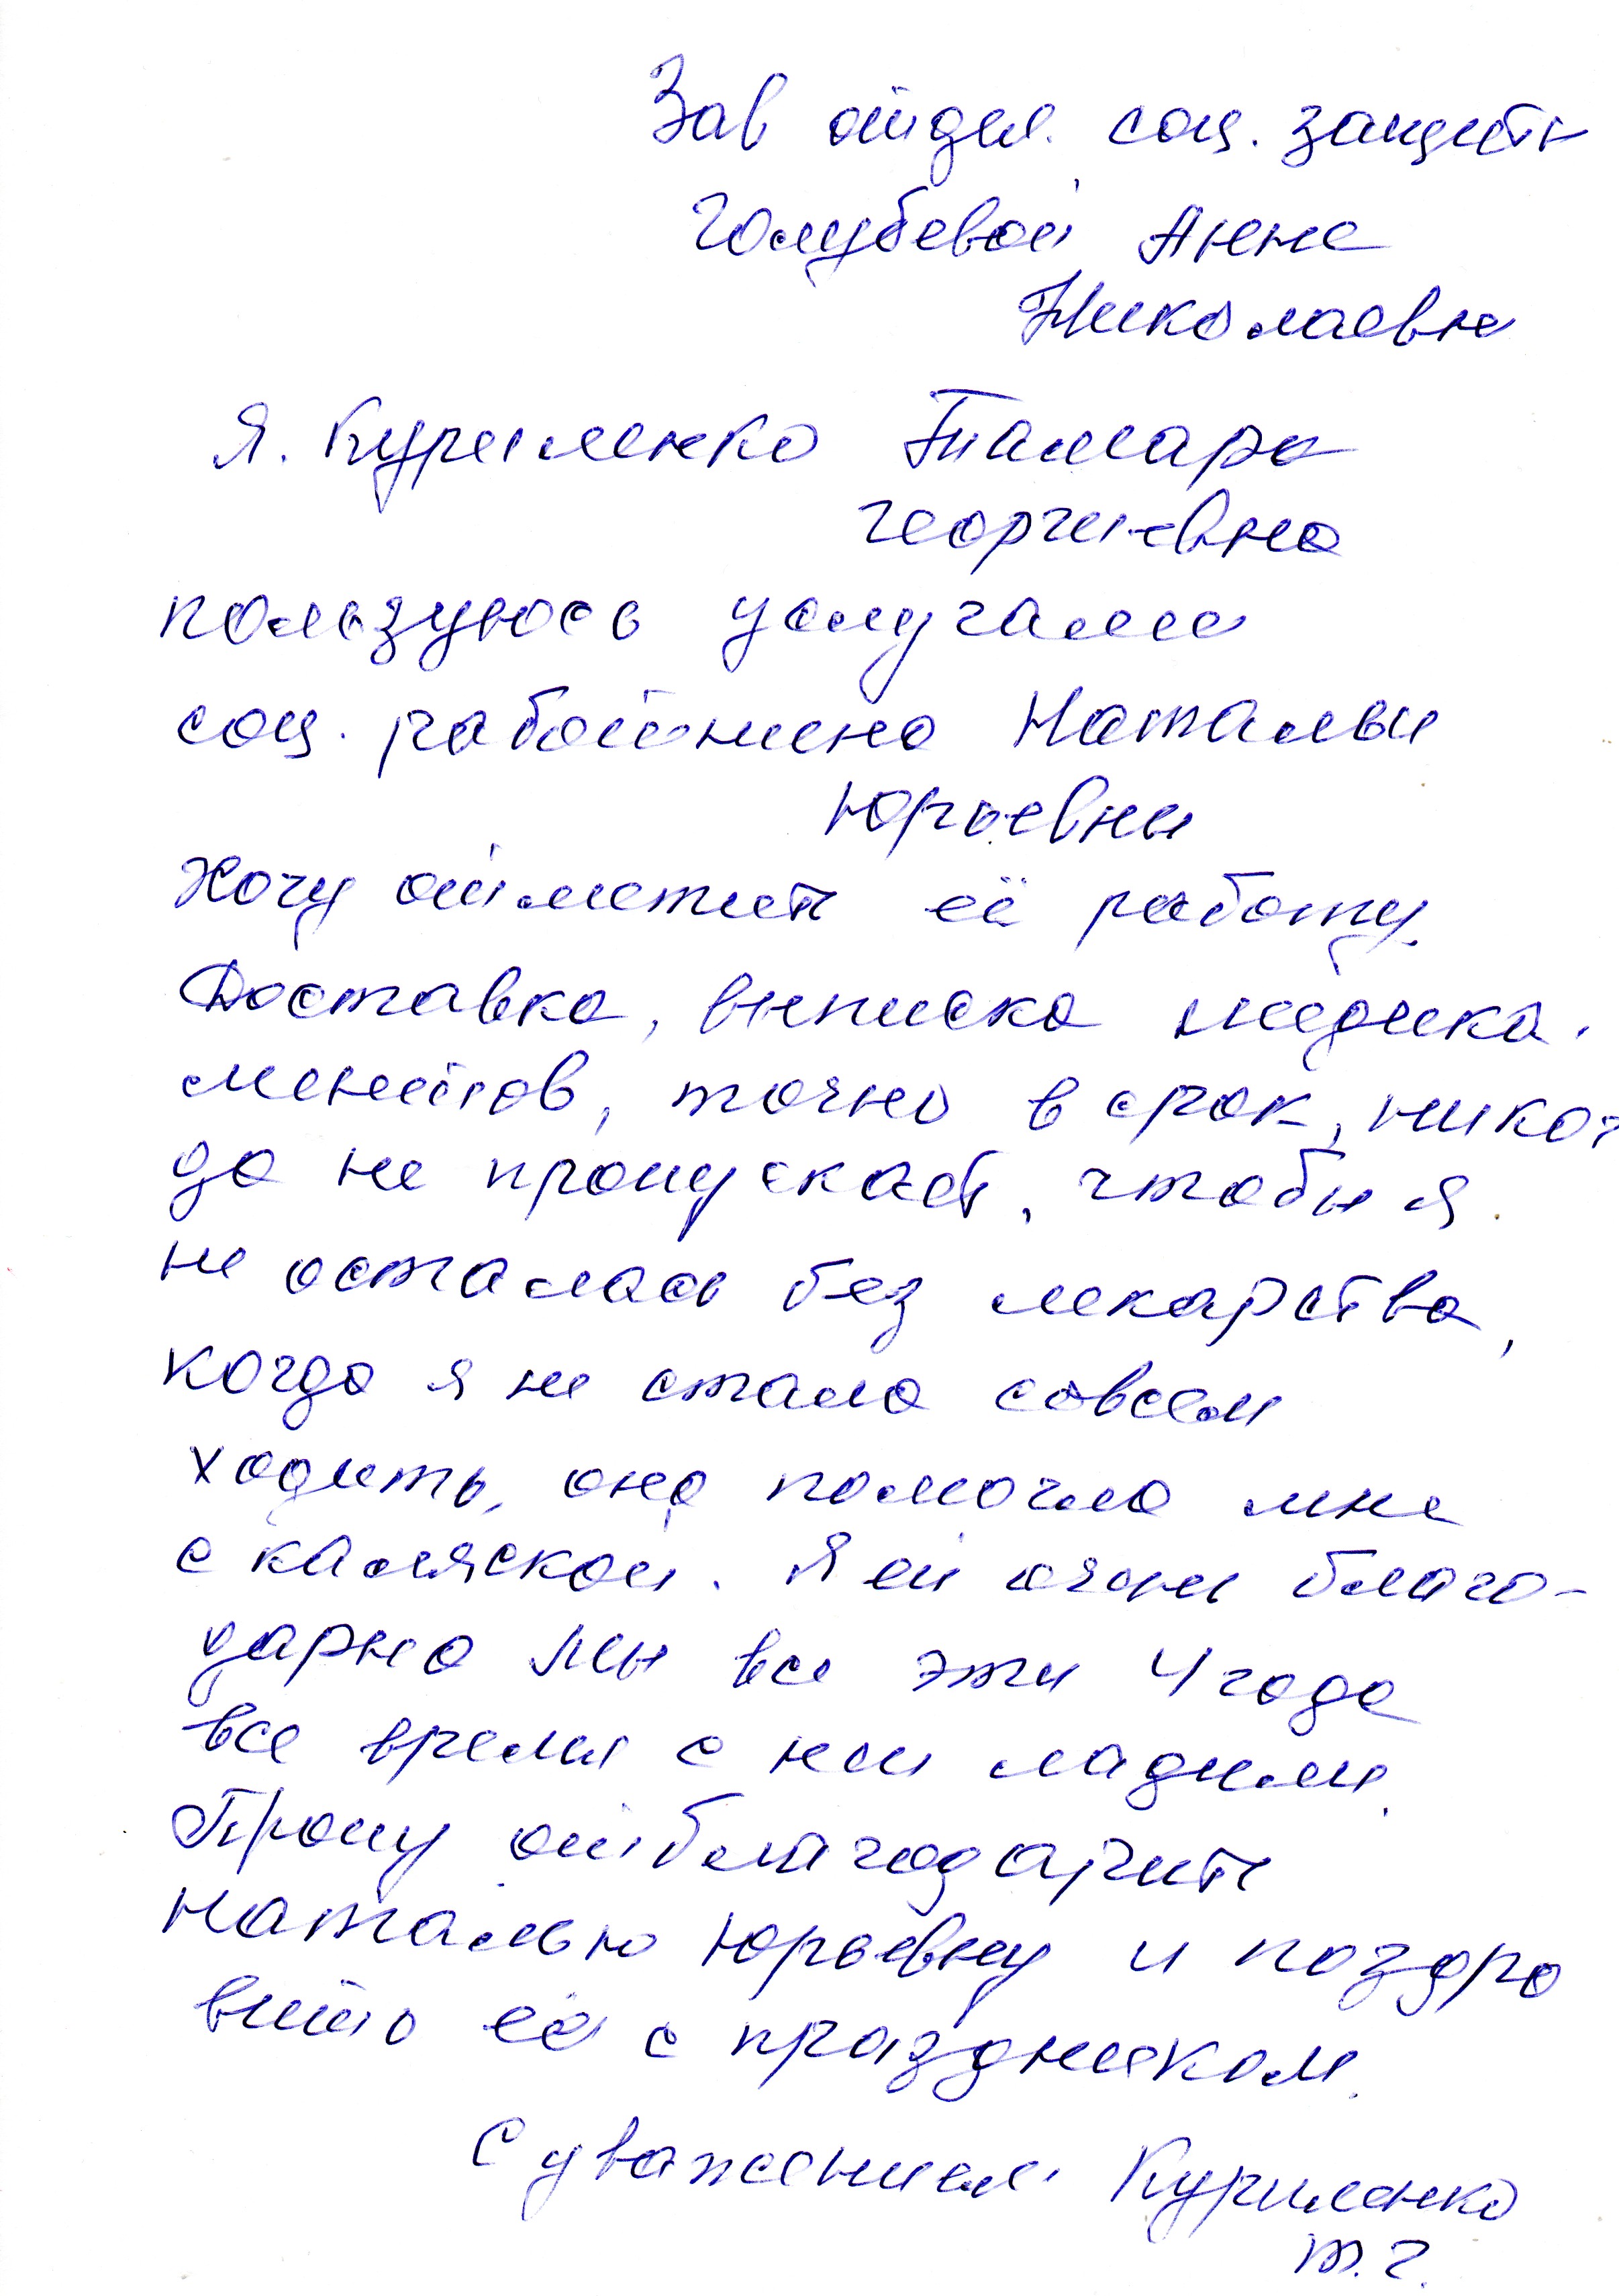 Зав отдел. соц. защиты
Голубевой Анне
Николаевне
Я. Куриленко Тамара
Георгиевна
пользуюсь услугами
соц. работника Натальи
Юрьевны
Хочу отметить её работу.
Доставка, выписка медика-
ментов, точно в срок, никог
да не пропускает, чтобы я
не осталась без лекарства,
когда я не стала совсем
ходить, она помогла мне
с каляской. Я ей очень благо-
дарна Мы все эти 4 года
все время с ней ладили.
Прошу отблагодарить
Наталью Юрьевну и поздра
вить её с праздником.
С уважением Куриленко
Т.Г.